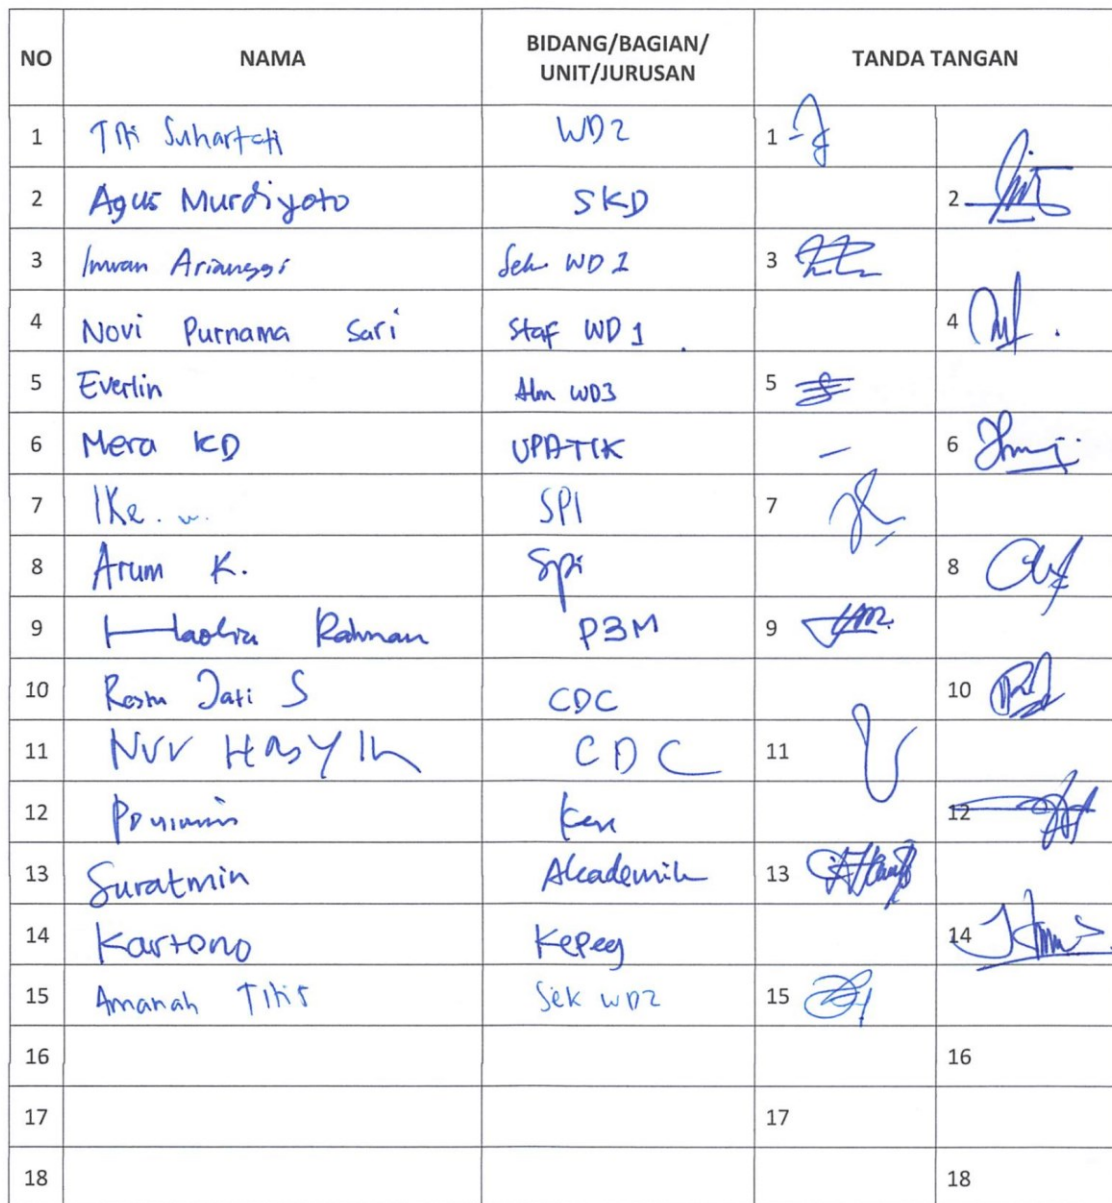 NO NAMA BIDANG/BAGIAN/ UNIT/JURUSAN TANDA TANGAN
1 Titi Suhartati WD2 1
2 Agus Murdiyoto SKD 2
3 Imran WD 1 3
4 Novi Purnama Sari Staf WD 1 4
5 Everlin WD3 5
6 Mera KD UPATIK 6
7 Ike. w. SPI 7
8 Arum K. Spi 8
9 Rahman P3M 9
10 Jati S CDC 10
11 Nur Hasyim CDC 11
12 12
13 Suratmin Akademik 13
14 Kartono Kepeg 14
15 Amanah Titis Sek WD2 15
16 16
17 17
18 18